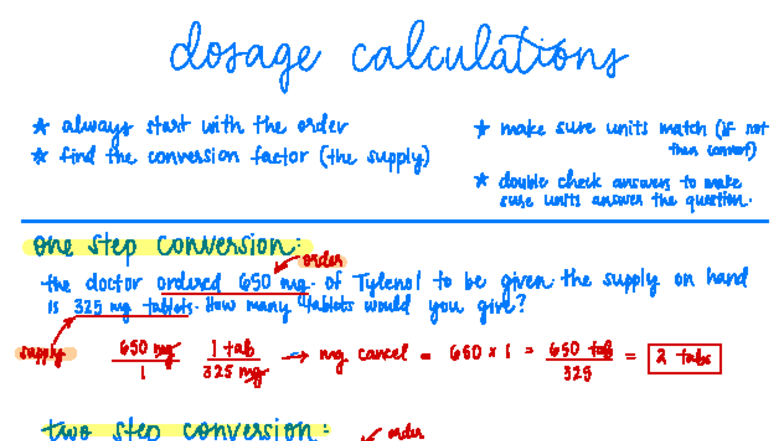 dosage calculations
★ always start with the order
★ find the conversion factor (the supply)
★ make sure units match (if not
then convert)
★ double check answers to make
sure units answer the question.
one step conversion:
order
the doctor ordered 650 mg. of Tylenol to be given. the supply on hand
is 325 mg tablets. How many tablets would you give?
supply
650 mg / 1   1 tab / 325 mg → mg cancel = 650 x 1 = 650 tab / 325 = 2 tabs
two step conversion:
order